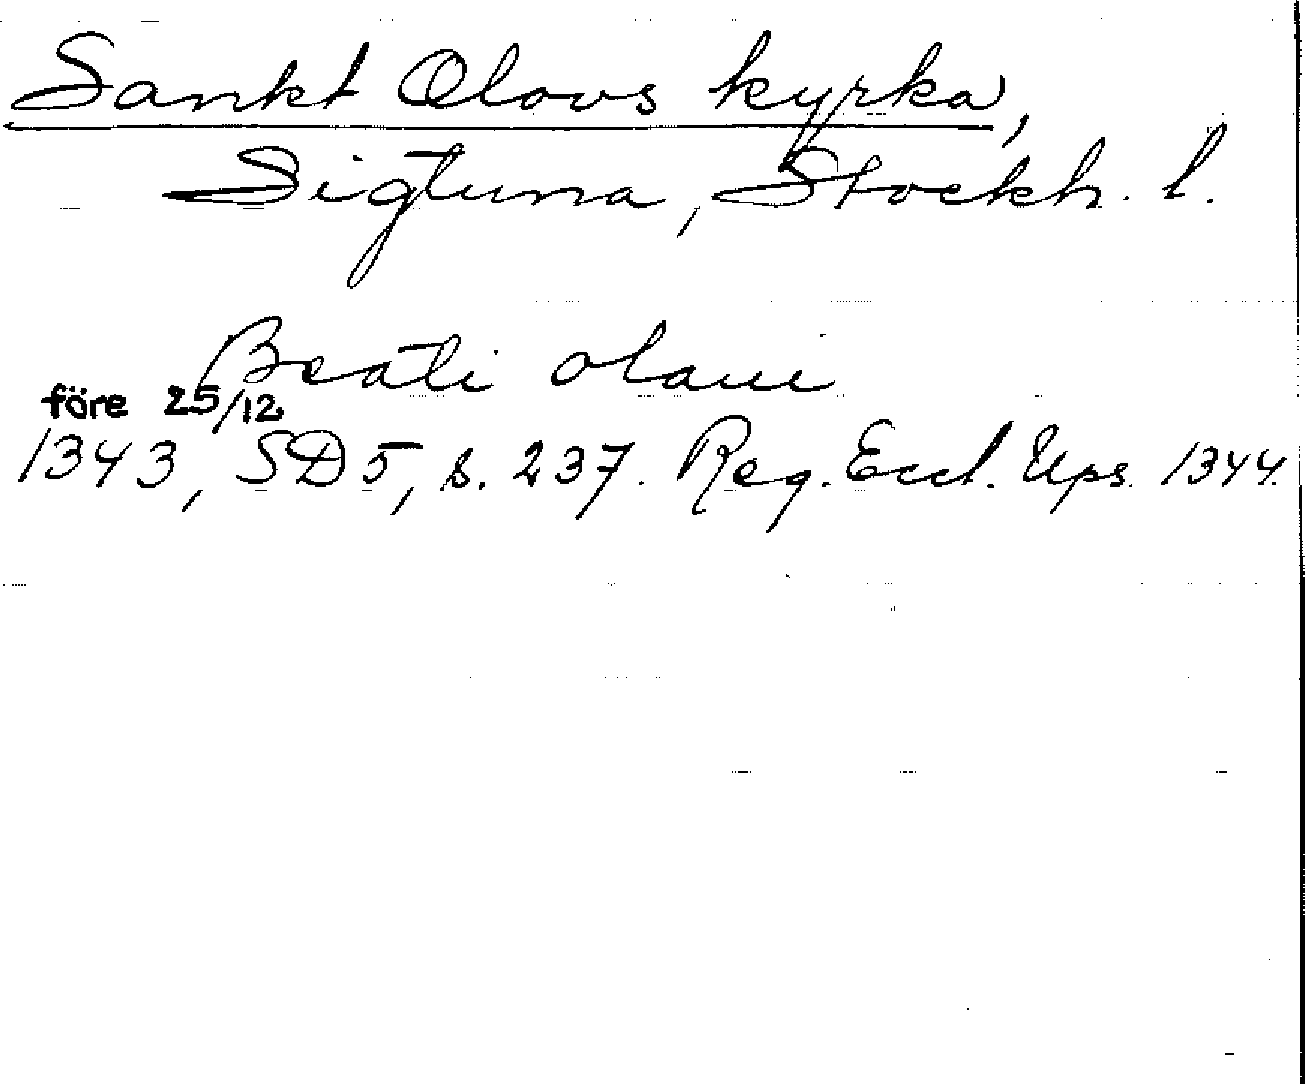 Sankt Olovs kyrka,
Sigtuna, Stockh. l.
Beati olaui
före 25/12
1343, SD5, s. 237. Reg. Eccl. Ups. 1344.